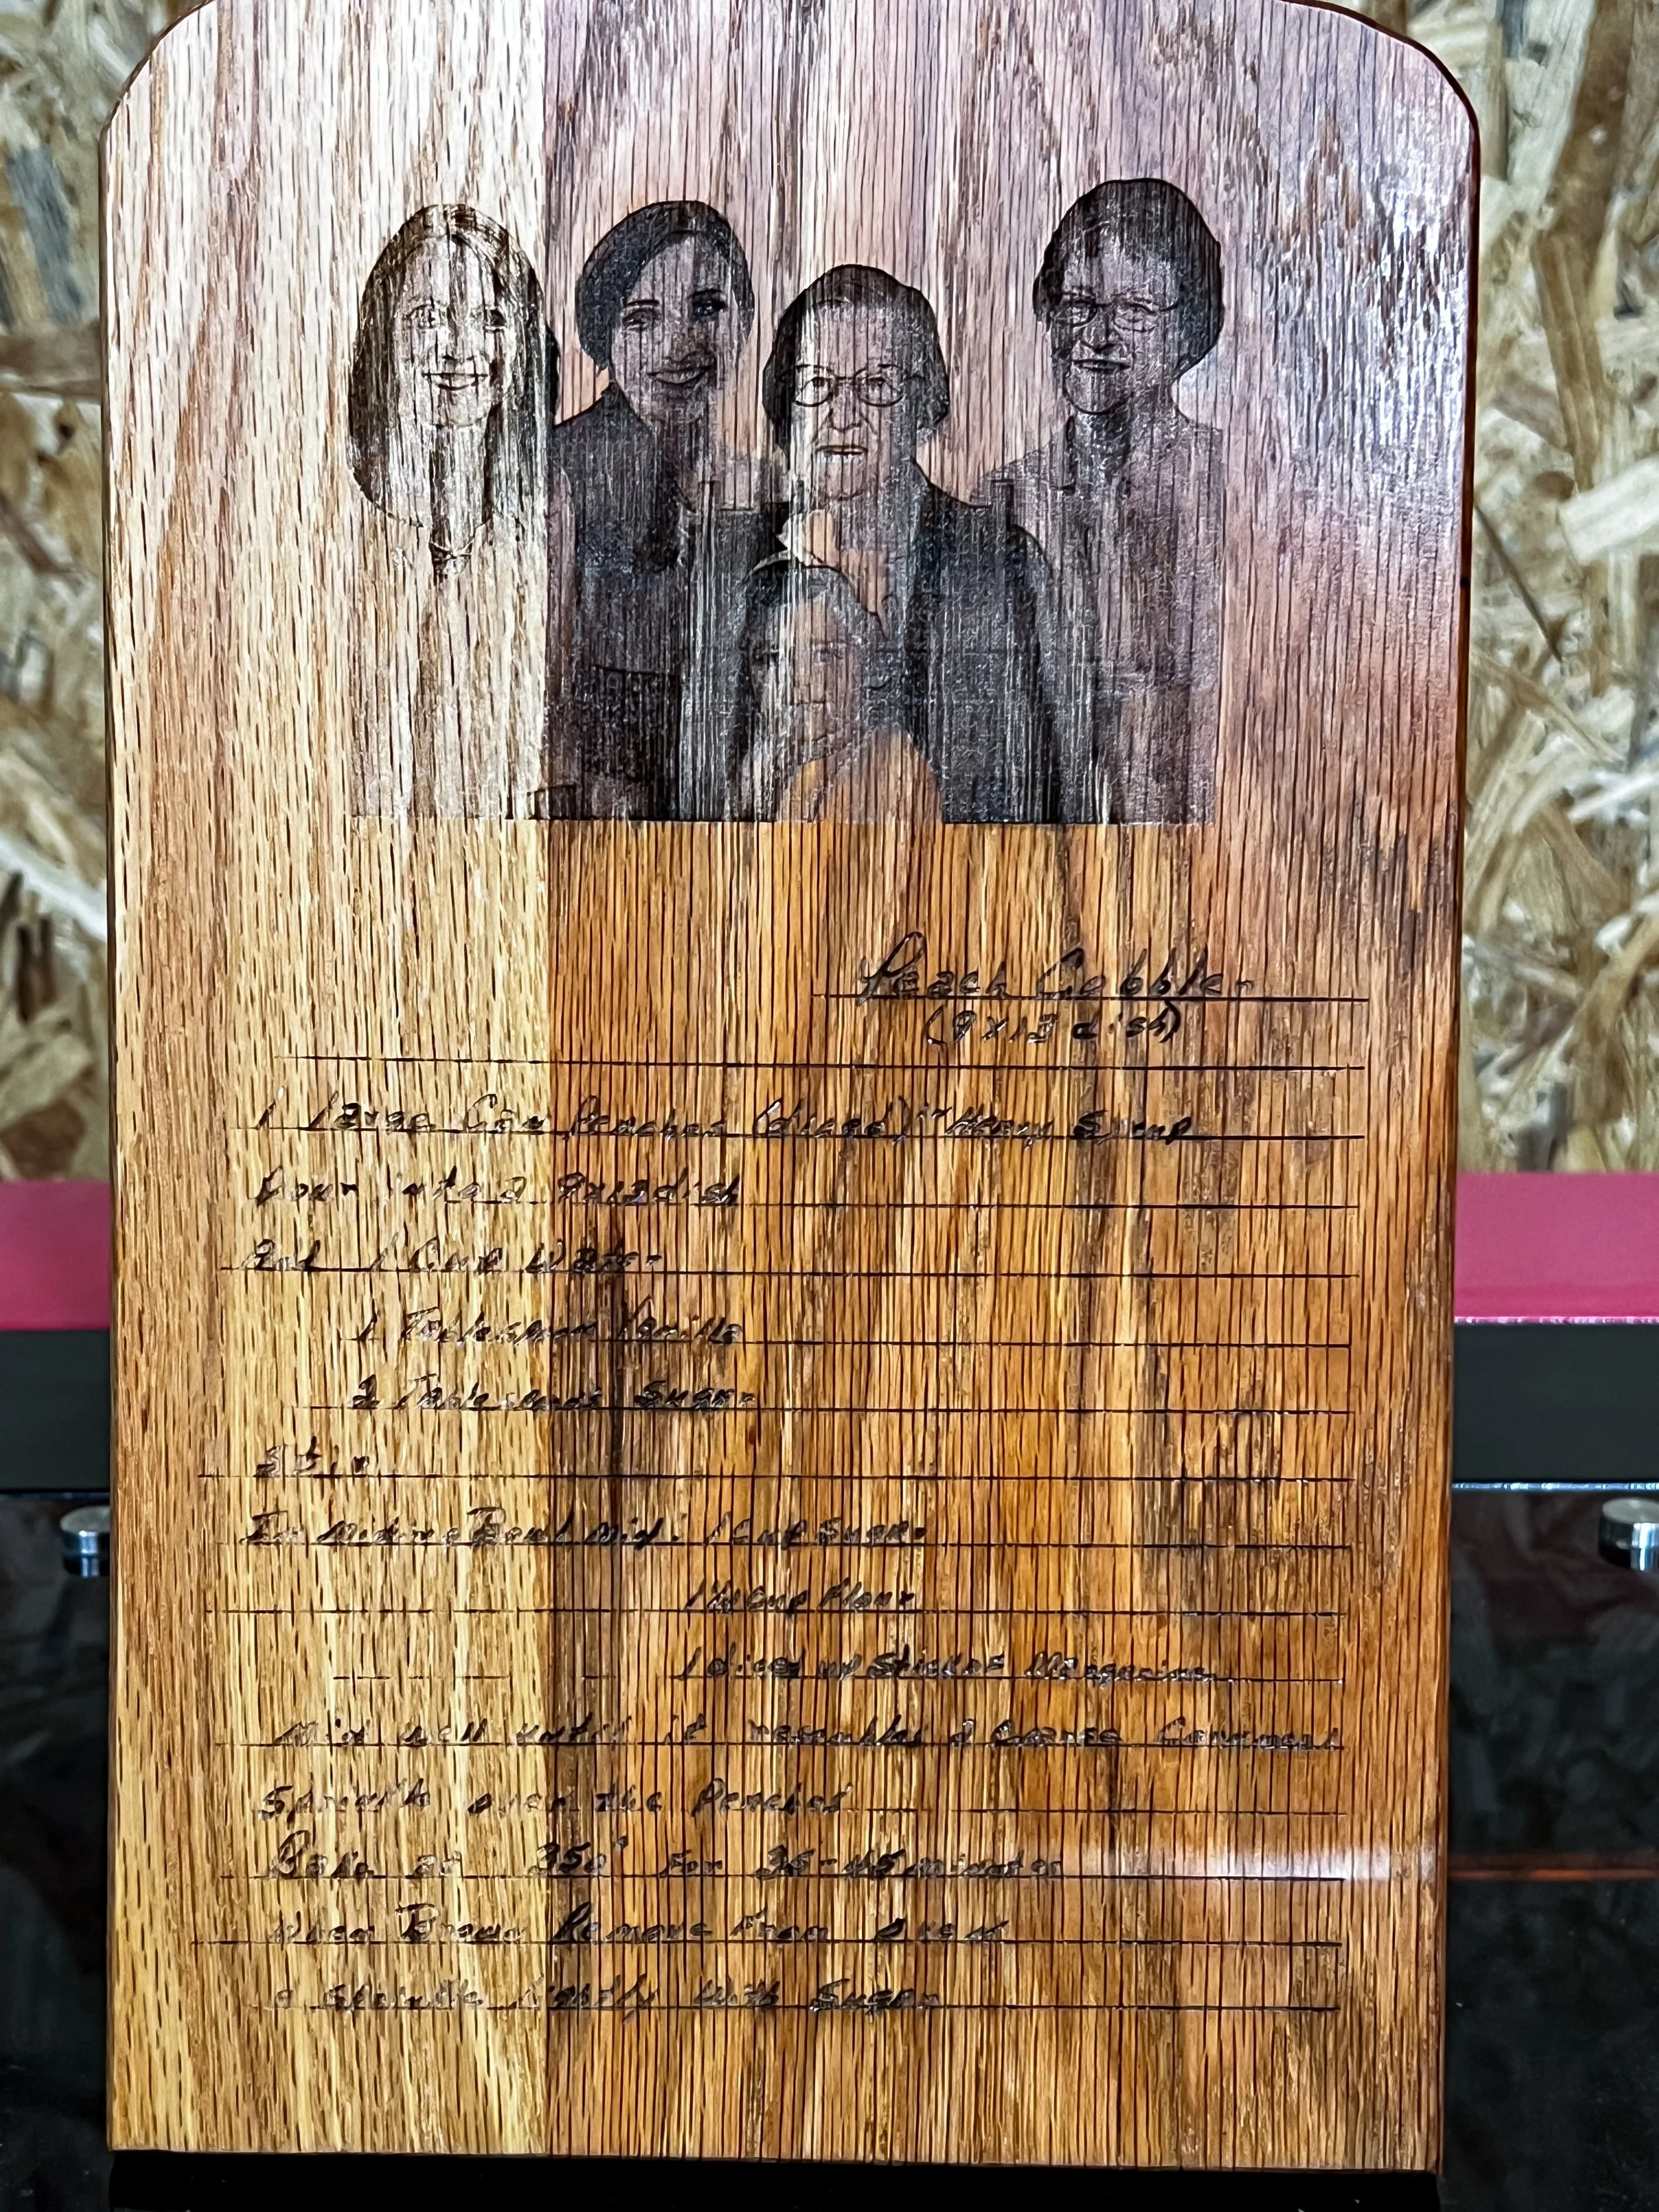 Peach Cobbler
(9x13 dish)
1 Large Can Peaches (diced) in Heavy Syrup
Pour into a 9x13 dish
Add 1 Cup Water
1 Tablespoon Vanilla
2 Tablespoons Sugar
Stir
In Mixing Bowl Mix: 1 Cup Sugar
Cup Flour
1 diced up Stick of Margarine
Mix well until it resembles a Coarse Cornmeal
Sprinkle over the Peaches
Bake at 350° For 35-45 minutes
When Brown Remove From oven
& sprinkle lightly with Sugar